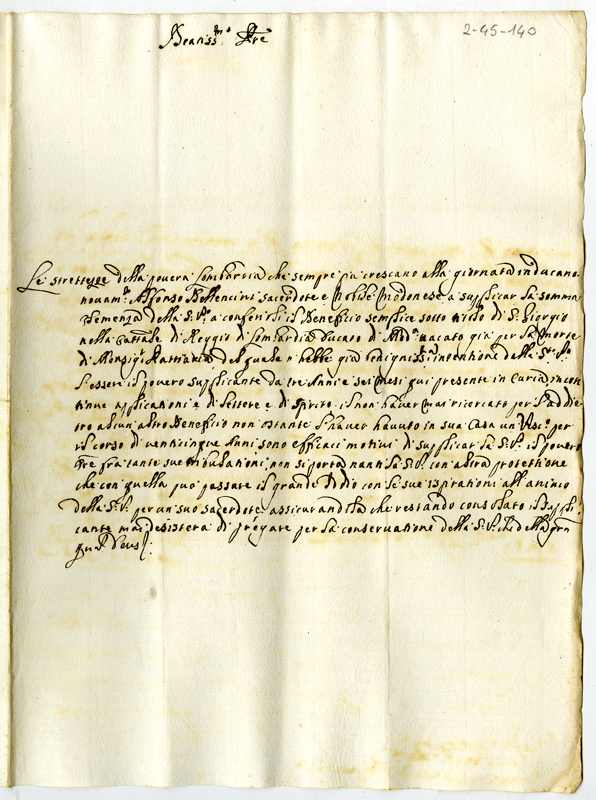 Beatiss.mo Pre
2-45-140
Le strettezze della povera Lombardia che sempre più crescano alla giornata inducano
novam.te Alfonso Bellencini sacerdote e Nobile Modonese a supplicar la somma
Clemenza della S.V. a conferirli il Beneficio semplice sotto titolo di S. Giorgio
nella Cattrale di Reggio di Lombardia Ducato di Mod.a vacato già per la morte
di Monsig.r del quale n'hebbe già benigniss.a intentione della S.V.
L'essere il povero supplicante da tre Anni e sei Mesi qui presente in Curia in con
tinue applicationi e di lettere e di spirito, il non haver mai ricercato per l'addie
tro alcun altro Beneficio non ostante l'haver havuto in sua Casa un Vesc.o per
il corso di venticinque Anni sono efficaci motivi di supplicar la S.V. il povero
Pre fra tante sue tribulationi, non si porta nanti la S.V. con altra protettione
che con quella può passare il grande Iddio con le sue ispirationi all'animo
della S.V. per un suo sacerdote, assicurandola che restando consolato il suppli-
cante mai desisterà di pregare per la conservatione della S.V. che della
Deus